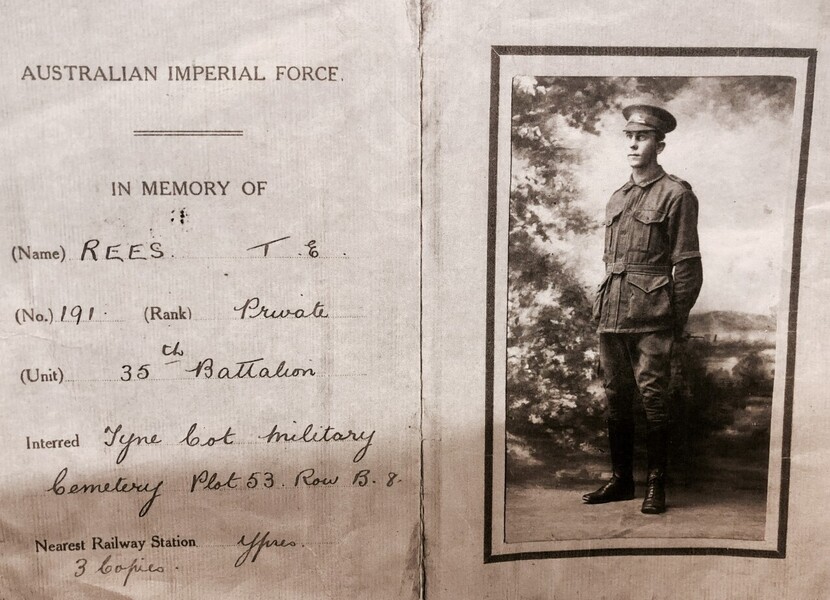 AUSTRALIAN IMPERIAL FORCE.
IN MEMORY OF
(Name) REES. T. E.
(No.) 191. (Rank) Private
(Unit) 35th Battalion
Interred Tyne Cot Military
Cemetery Plot 53. Row B. 8.
Nearest Railway Station Ypres.
3 Copies.